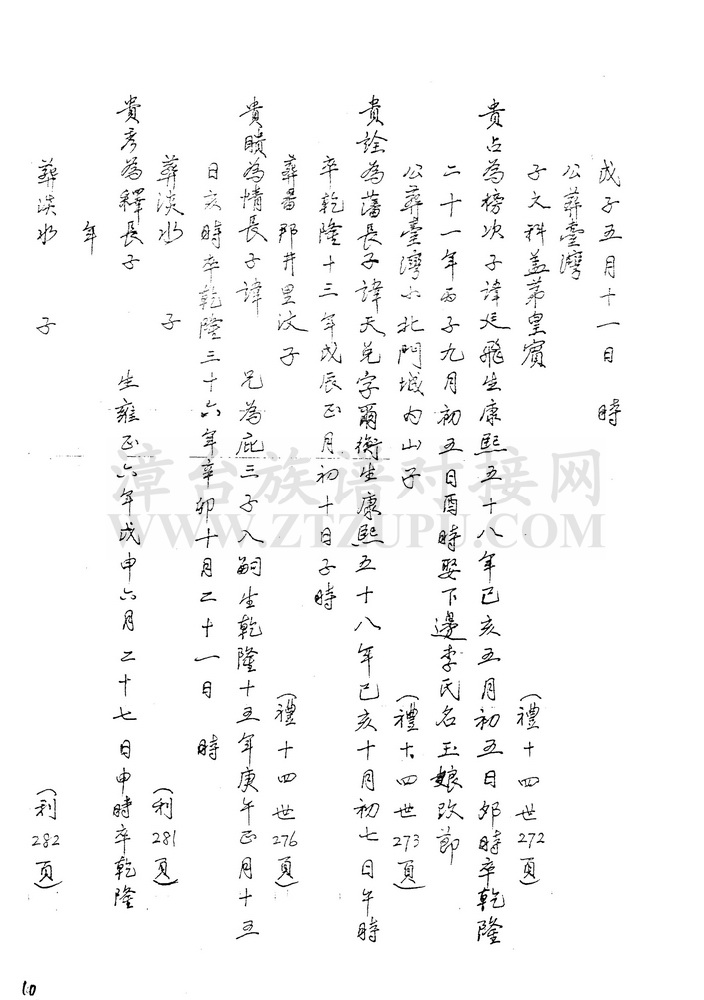 戊子五月十一日　時
公葬臺灣
子文科盖茀皇賓
（禮十四世272頁）
貴占為榜次子諱廷飛生康熙五十八年己亥五月初五日卯時卒乾隆
二十一年丙子九月初五日酉時娶下邊李氏名玉娘改節
公葬臺灣小北門城内山子
（禮十四世273頁）
貴詮為藩長子諱天兑字爾衡生康熙五十八年己亥十月初七日午時
卒乾隆十三年戊辰正月初十日子時
葬番郡井里汶子
（禮十四世276頁）
貴賾為情長子諱　兄為庇三子入嗣生乾隆十五年庚午正月十五
日亥時卒乾隆三十六年辛卯十月二十一日　時
葬淡水　子
（利281頁）
貴彥為繹長子　生雍正六年戊申六月二十七日申時卒乾隆
年
葬淡水　子
（利282頁）
漳台族谱对接网
WWW.ZTZUPU.COM
10